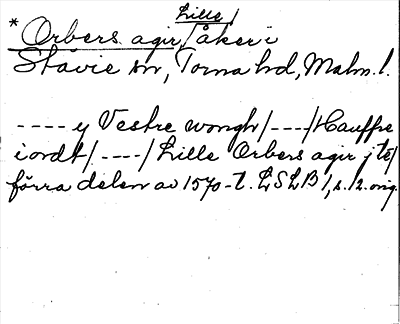 Lille/
* Orbers agir/åker i
Stävie sn, Torna hd, Malm. l.
---- y Vestre wongh/----/Hauffre
iordt/----/Lille Orbers agir j te/
förra delen av 1570-t. LSLB 1, s. 12. orig.